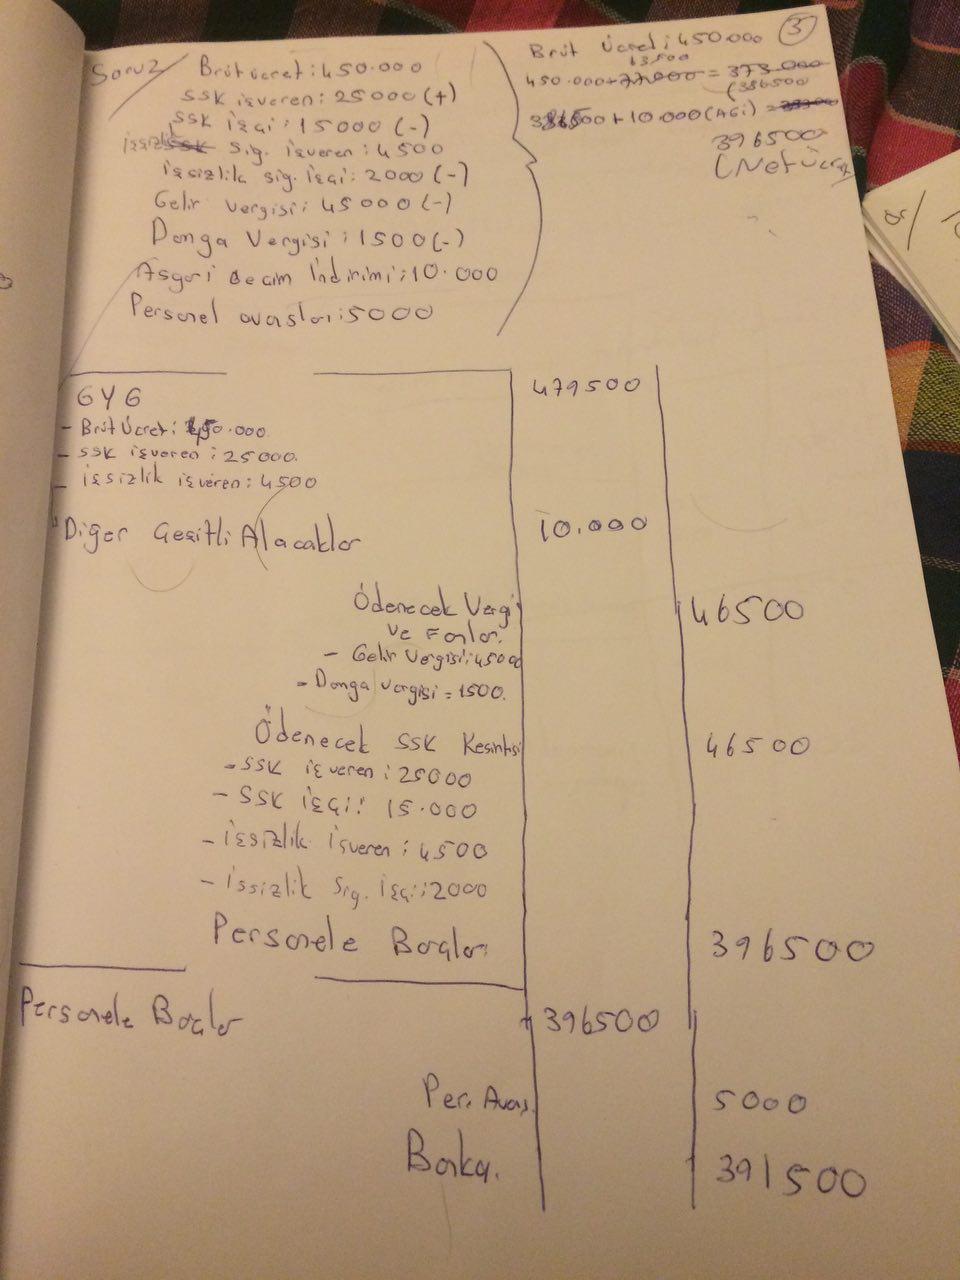 3
Soru 2
Brüt ücret: 450.000
SSK işveren: 25000 (+)
SSK işçi: 15000 (-)
işsizlik sig. işveren: 4500
işsizlik sig. işçi: 2000 (-)
Gelir vergisi: 45000 (-)
Damga Vergisi: 1500 (-)
Asgari Gecim İndirimi: 10.000
Personel avansları: 5000
Brüt ücret: 450.000
63500
450.000+77000 = 373.000
(386500
386500 + 10.000 (AGİ) =
396500
(Net Ücret
GYG
- Brüt Ücret: 450.000
- SSK işveren: 25000.
- işsizlik işveren: 4500
479500
Diğer Çeşitli Alacaklar
10.000
Ödenecek Vergi
ve Fonlar.
- Gelir Vergisi: 45000
- Damga vergisi = 1500.
46500
Ödenecek SSK Kesintisi
- SSK işveren: 25000
- SSK işçi: 15.000
- işsizlik işveren: 4500
- işsizlik sig. işçi: 2000
46500
Personele Borçlar
396500
Personele Borçlar
396500
Per. Avas.
5000
Banka.
391500